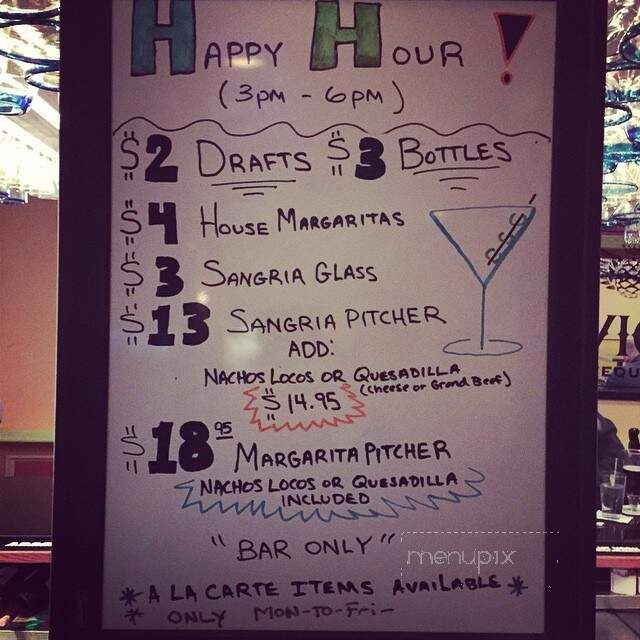 HAPPY HOUR !
(3PM - 6PM)
$2 DRAFTS $3 BOTTLES
$4 HOUSE MARGARITAS
$3 SANGRIA GLASS
$13 SANGRIA PITCHER
ADD:
NACHOS LOCOS OR QUESADILLA
(Cheese or Grond Beef)
$14.95
$18.95 MARGARITA PITCHER
NACHOS LOCOS OR QUESADILLA
INCLUDED
"BAR ONLY"
menupix
* A LA CARTE ITEMS AVAILABLE *
* ONLY MON-TO-Fri-